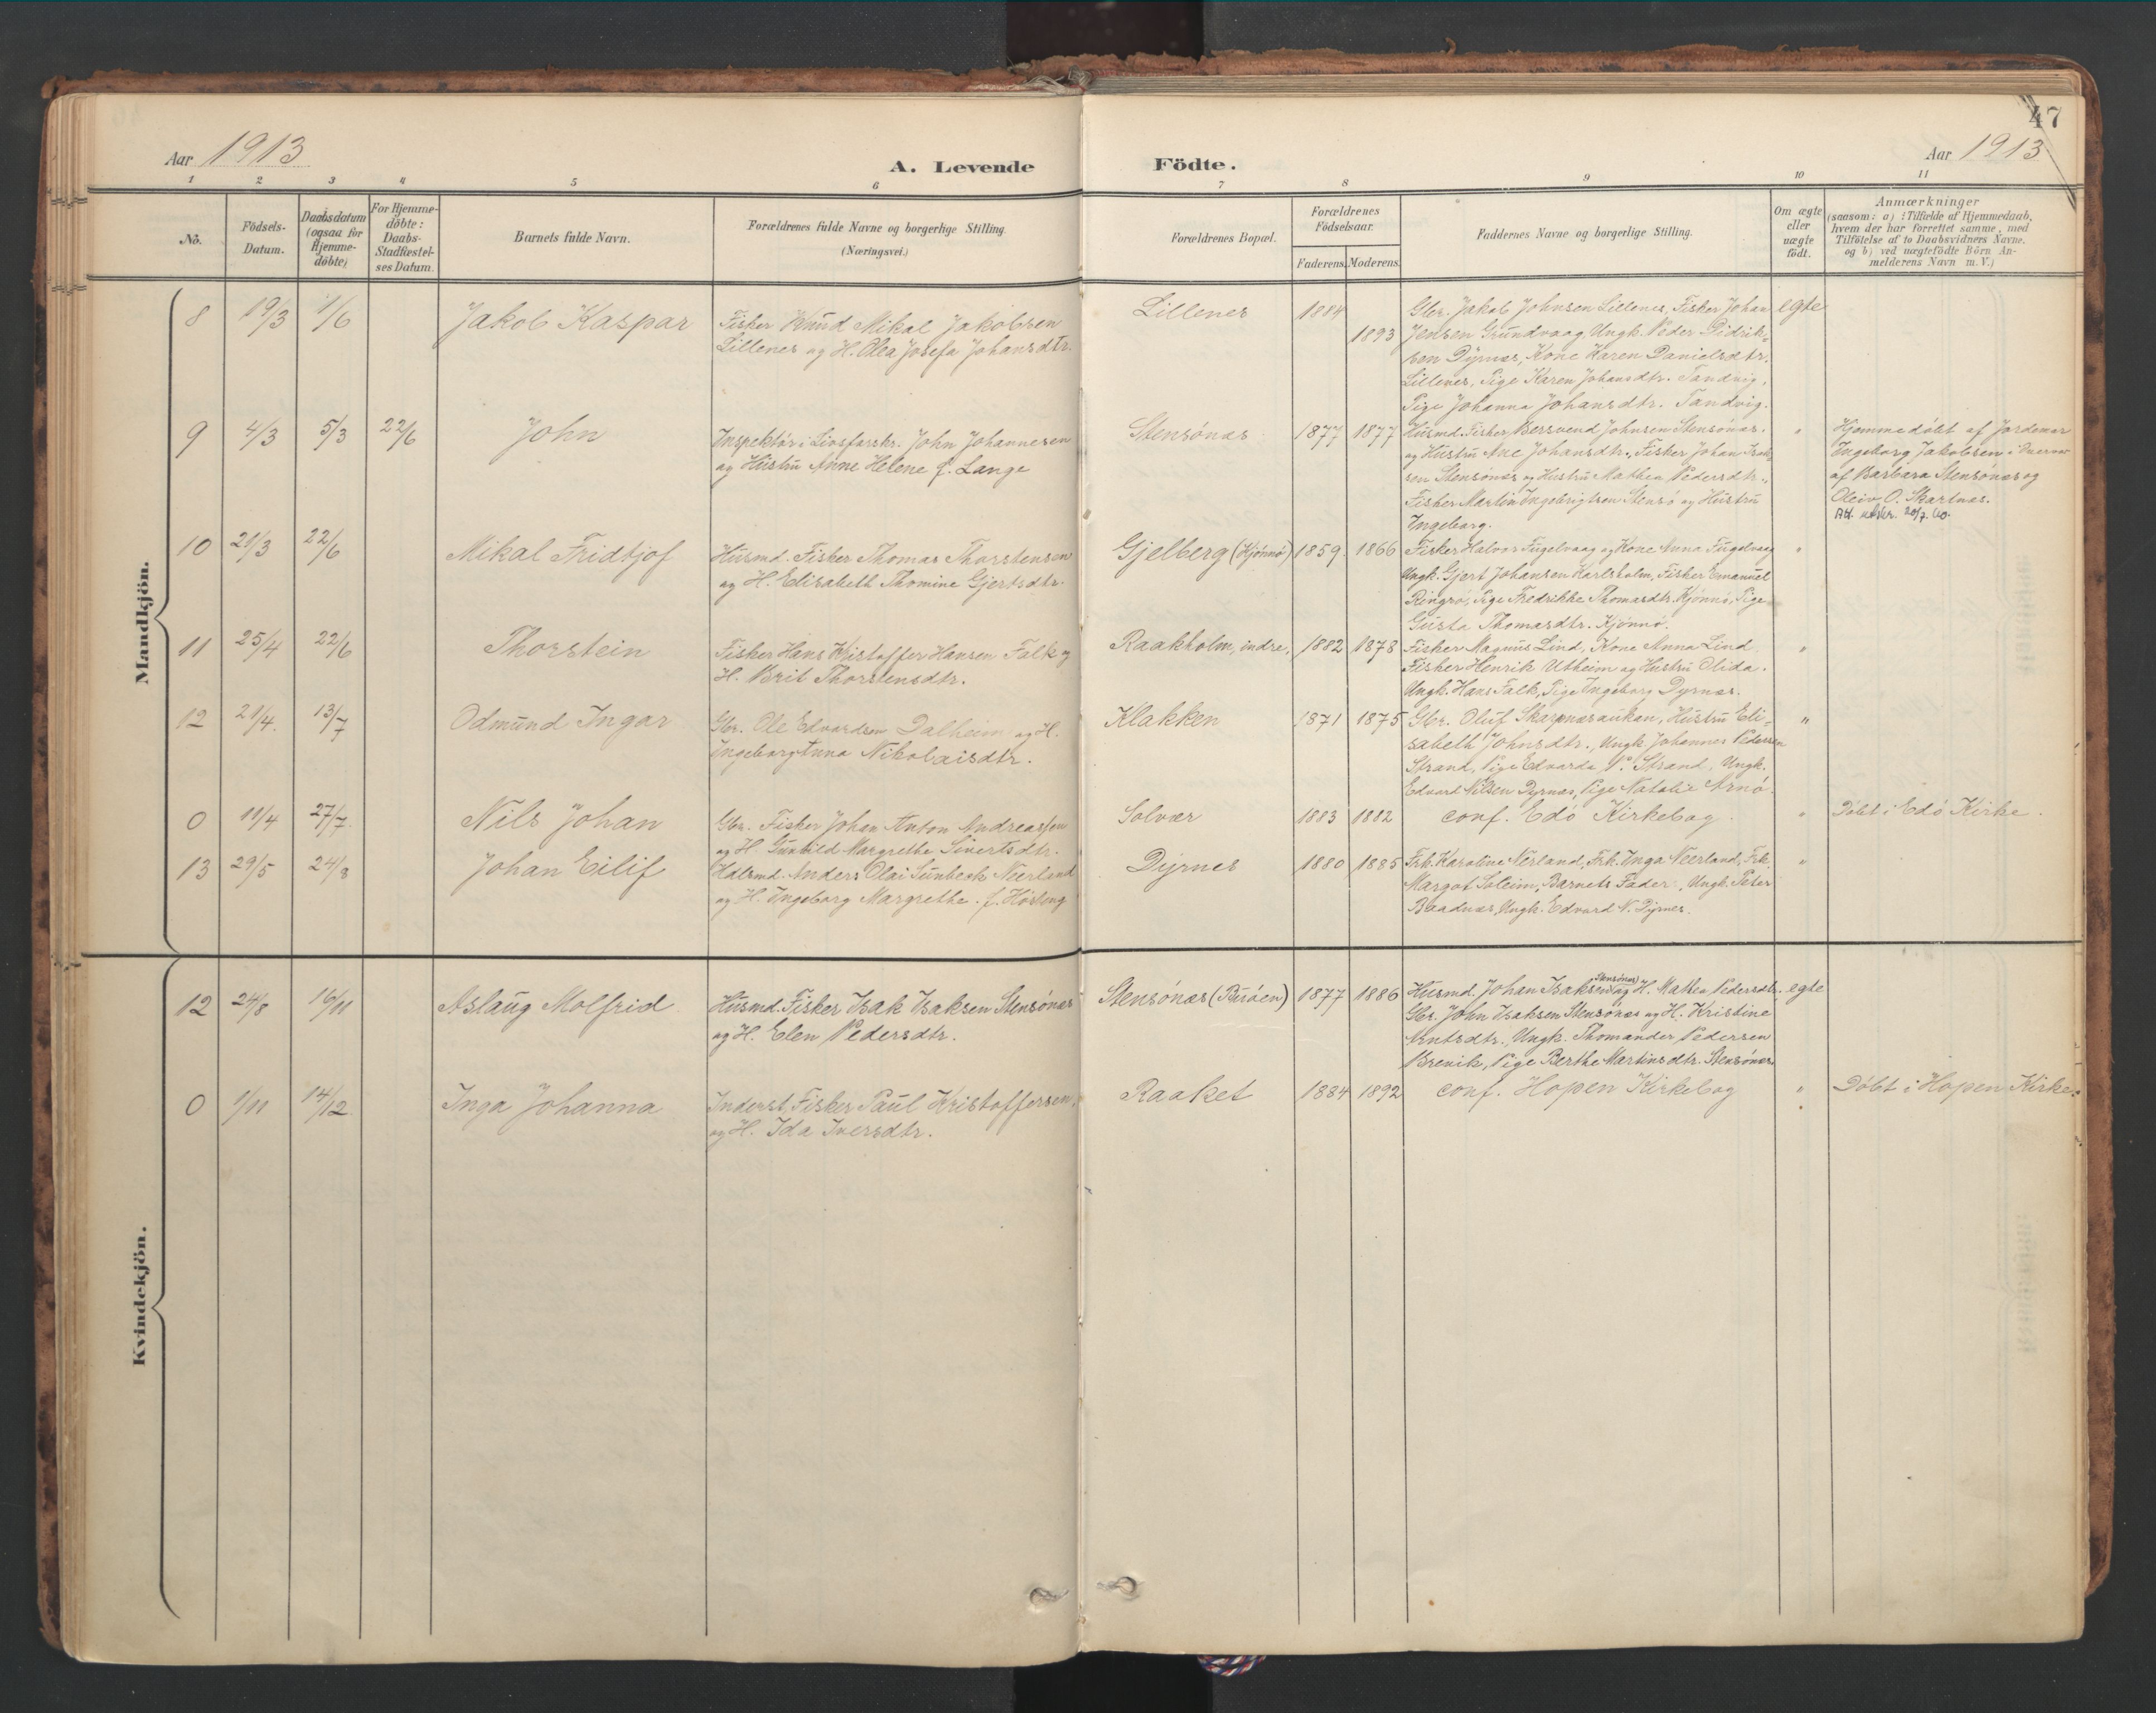 47
Aar 1913
A. Levende Födte.
Aar 1913
1 2 3 4 5 6 7 8 9 10 11
No.
Födsels-
Datum.
Daabsdatum
(ogsaa for
Hjemme-
döbte)
For Hjemme-
döbte:
Daabs-
Stadfæstel-
ses Datum.
Barnets fulde Navn.
Forældrenes fulde Navne og borgerlige Stilling.
(Næringsvei.)
Forældrenes Bopæl.
Forældrenes
Födselsaar.
Faderens. Moderens.
Faddernes Navne og borgerlige Stilling.
Om ægte
eller
uægte
födt.
Anmærkninger
(saasom: a) i Tilfælde af Hjemmedaab,
hvem der har forrettet samme, med
Tilföielse af to Daabsvidners Navne.
og b) ved uægtefödte Börn An-
melderens Navn m. V.)
Mandkjön.
8 19/3 1/6 Jakob Kaspar
Fisker Knud Mikal Jakobsen
Lillenes og H. Olea Josefa Johansdtr.
Lillenes 1884 1893
Gbr. Jakob Johnsen Lillenes, Fisker Johan
Jensen Grundvaag, Ungk. Peder Didrik-
sen Dyrnes, Kone Karen Danielsdtr.
Lillenes, Pige Karen Johansdtr. Tandvig,
Pige Johanna Johansdtr. Tandvig.
egte
9 4/3 5/3 22/6 John
Inspektör i Livsforsikr. John Johannesen
og Hustru Anne Helene f. Lange
Stensönes 1877 1877
Husmd. Fisker Bersvend Johnsen Stensönes.
og Hustru Ane Johansdtr., Fisker Johan Isak-
sen Stensönes og Hustru Mathea Pedersdtr.,
Fisker Martin Ingebrigtsen Stensö og Hustru
Ingeborg.
"
Hjemmedöbt af Jordemor
Ingeborg Jakobsen i Overvær
af Barbara Stensönes og
Oleiv O. Skartnes.
Att. utskr. 20/7. 60.
10 21/3 22/6 Mikal Fridtjof
Husmd. Fisker Thomas Thorstensen
og H. Elisabeth Thomine Gjertsdtr.
Gjelberg (Kjönnö) 1859. 1866
Fisker Halvor Fugelvaag og Kone Anna Fugelvaag
Ungk. Gjert Johansen Karlsholm, Fisker Emanuel
Ringsö, Pige Fredrikke Thomasdtr. Kjönnö, Pige
Gusta Thomasdtr. Kjönnö.
"
11 25/4 22/6 Thorstein
Fisker Hans Kristoffer Hansen Falk og
H. Brit Thorstensdtr.
Raakholm, indre, 1882 1878
Fisker Magnus Lind, Kone Anna Lind
Fisker Henrik Utheim og Hustru Olida.
Ungk. Hans Falk, Pige Ingeborg Dyrnes.
"
12 21/4. 13/7 Odmund Ingar
Gbr. Ole Edvardsen Dalheim og H.
Ingeborg Anna Nikolaisdtr.
Klakken 1871 1875
Gbr. Oluf Skarpnesauken, Hustru Eli-
sabeth Johnsdtr., Ungk. Johannes Pedersen
Strand, Pige Edvarda P. Strand, Ungk.
Edvard Nilsen Dyrnes, Pige Natalie Arnö.
"
0 11/4 27/7. Nils Johan
Gbr. Fisker Johan Anton Andreassen
og H. Gunhild Margrethe Sivertsdtr.
Solvær 1883 1882
conf. Edö Kirkebog.
"
Döbt i Edö Kirke.
13 29/5 24/8 Johan Eilif
Hdlsmd. Anders Olai Sunbeck Neerland
og H. Ingeborg Margrethe. f.
Dyrnes 1880 1885
Frk. Karoline Nerland, Frk. Inga Neerland, Frk.
Margot Soleim, Barnets Fader, Ungk. Peter
Baadnes, Ungk. Edvard N. Dyrnes.
"
Kvindekjön.
12 24/8 16/11 Aslaug Molfrid
Husmd. Fisker Isak Isaksen Stensönes
og H. Elen Pedersdtr.
Stensönes (Buöen) 1877 1886
Husmd. Johan Isaksen (Stensönes) og H. Mathea Pedersdtr.
Gbr. John Isaksen Stensönes og H. Kristine
Arntsdtr., Ungk. Thomander Pedersen
Brevik, Pige Berthe Martinsdtr. Stensönes.
egte
0 1/11 14/12 Inga Johanna
Inderst, Fisker Paul Kristoffersen
og H. Ida Iversdtr.
Raaket 1884 1892
conf. Hopen Kirkebog
"
Döbt i Hopen Kirke.